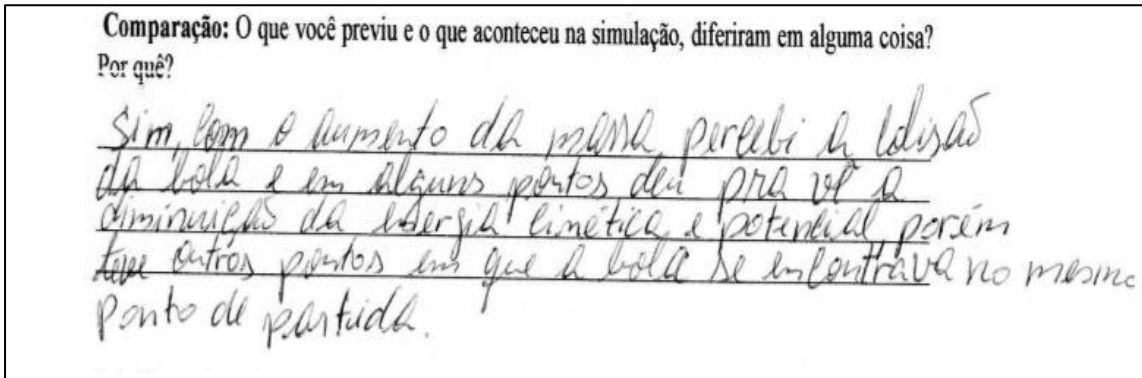 Comparação: O que você previu e o que aconteceu na simulação, diferiram em alguma coisa?
Por quê?
Sim, com o aumento da massa, percebi a colisão
da bola e em alguns pontos deu pra vê a
diminuição da energia cinética e potencial, porém
teve outros pontos em que a bola se encontrava no mesmo
ponto de partida.